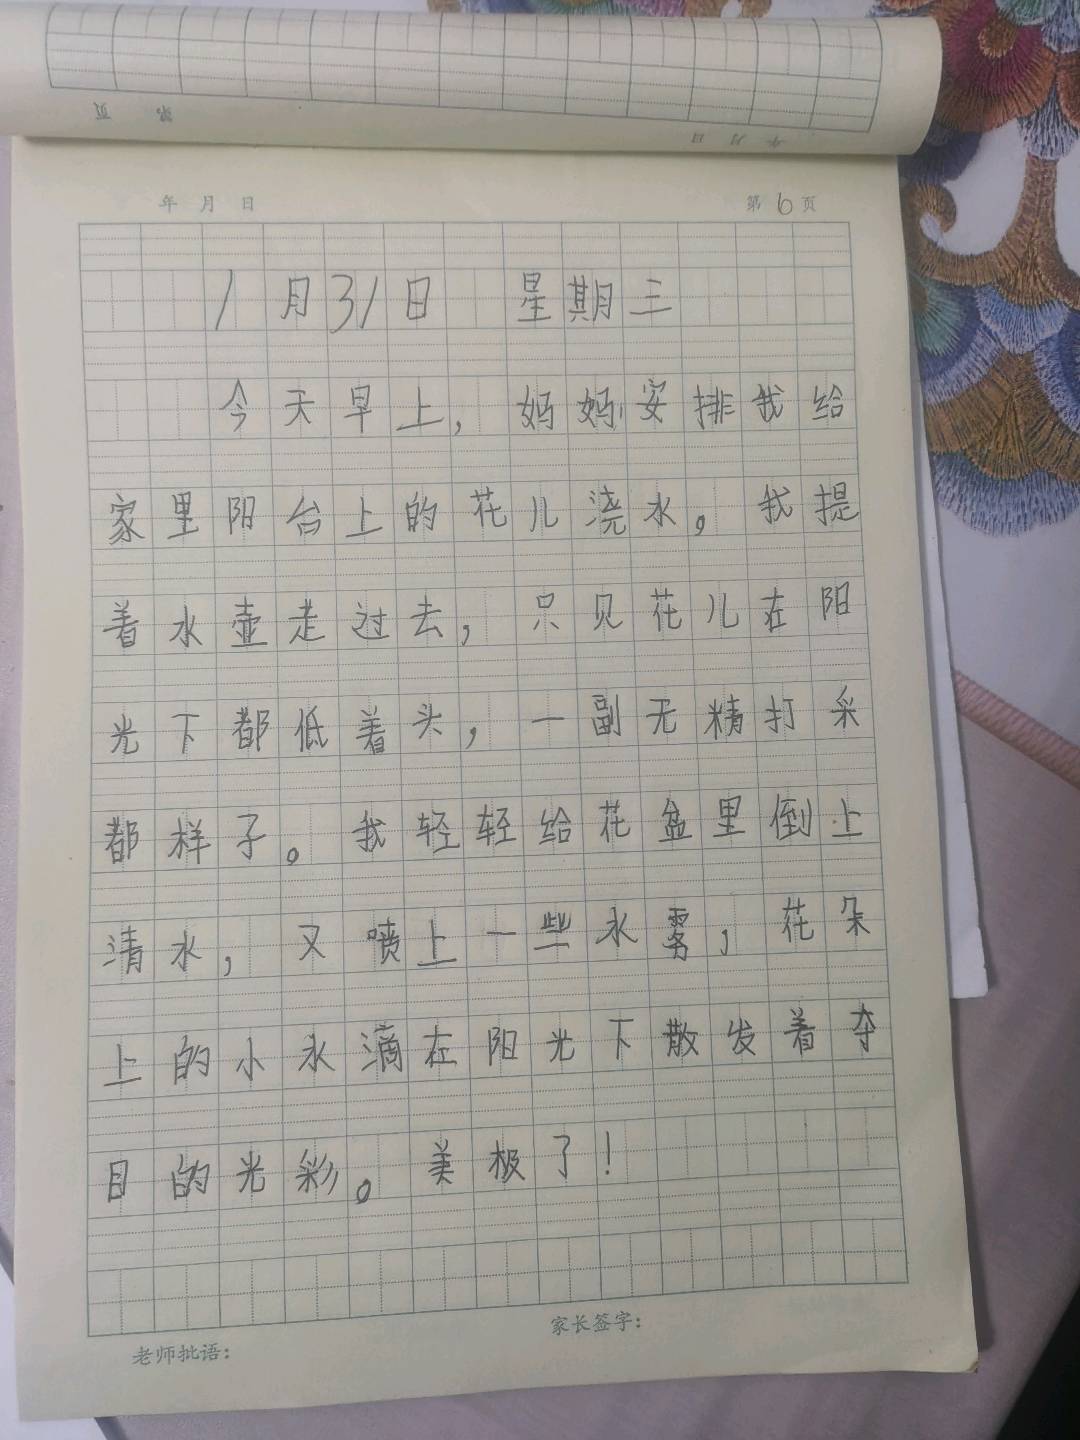 页 第
年 月 日
年 月 日 第 6 页
1月31日 星期三
今天早上，妈妈安排我给
家里阳台上的花儿浇水。我提
着水壶走过去，只见花儿在阳
光下都低着头，一副无精打采
都样子。我轻轻给花盆里倒上
清水，又喷上一些水雾，花朵
上的小水滴在阳光下散发着夺
目的光彩。美极了！
家长签字：
老师批语：